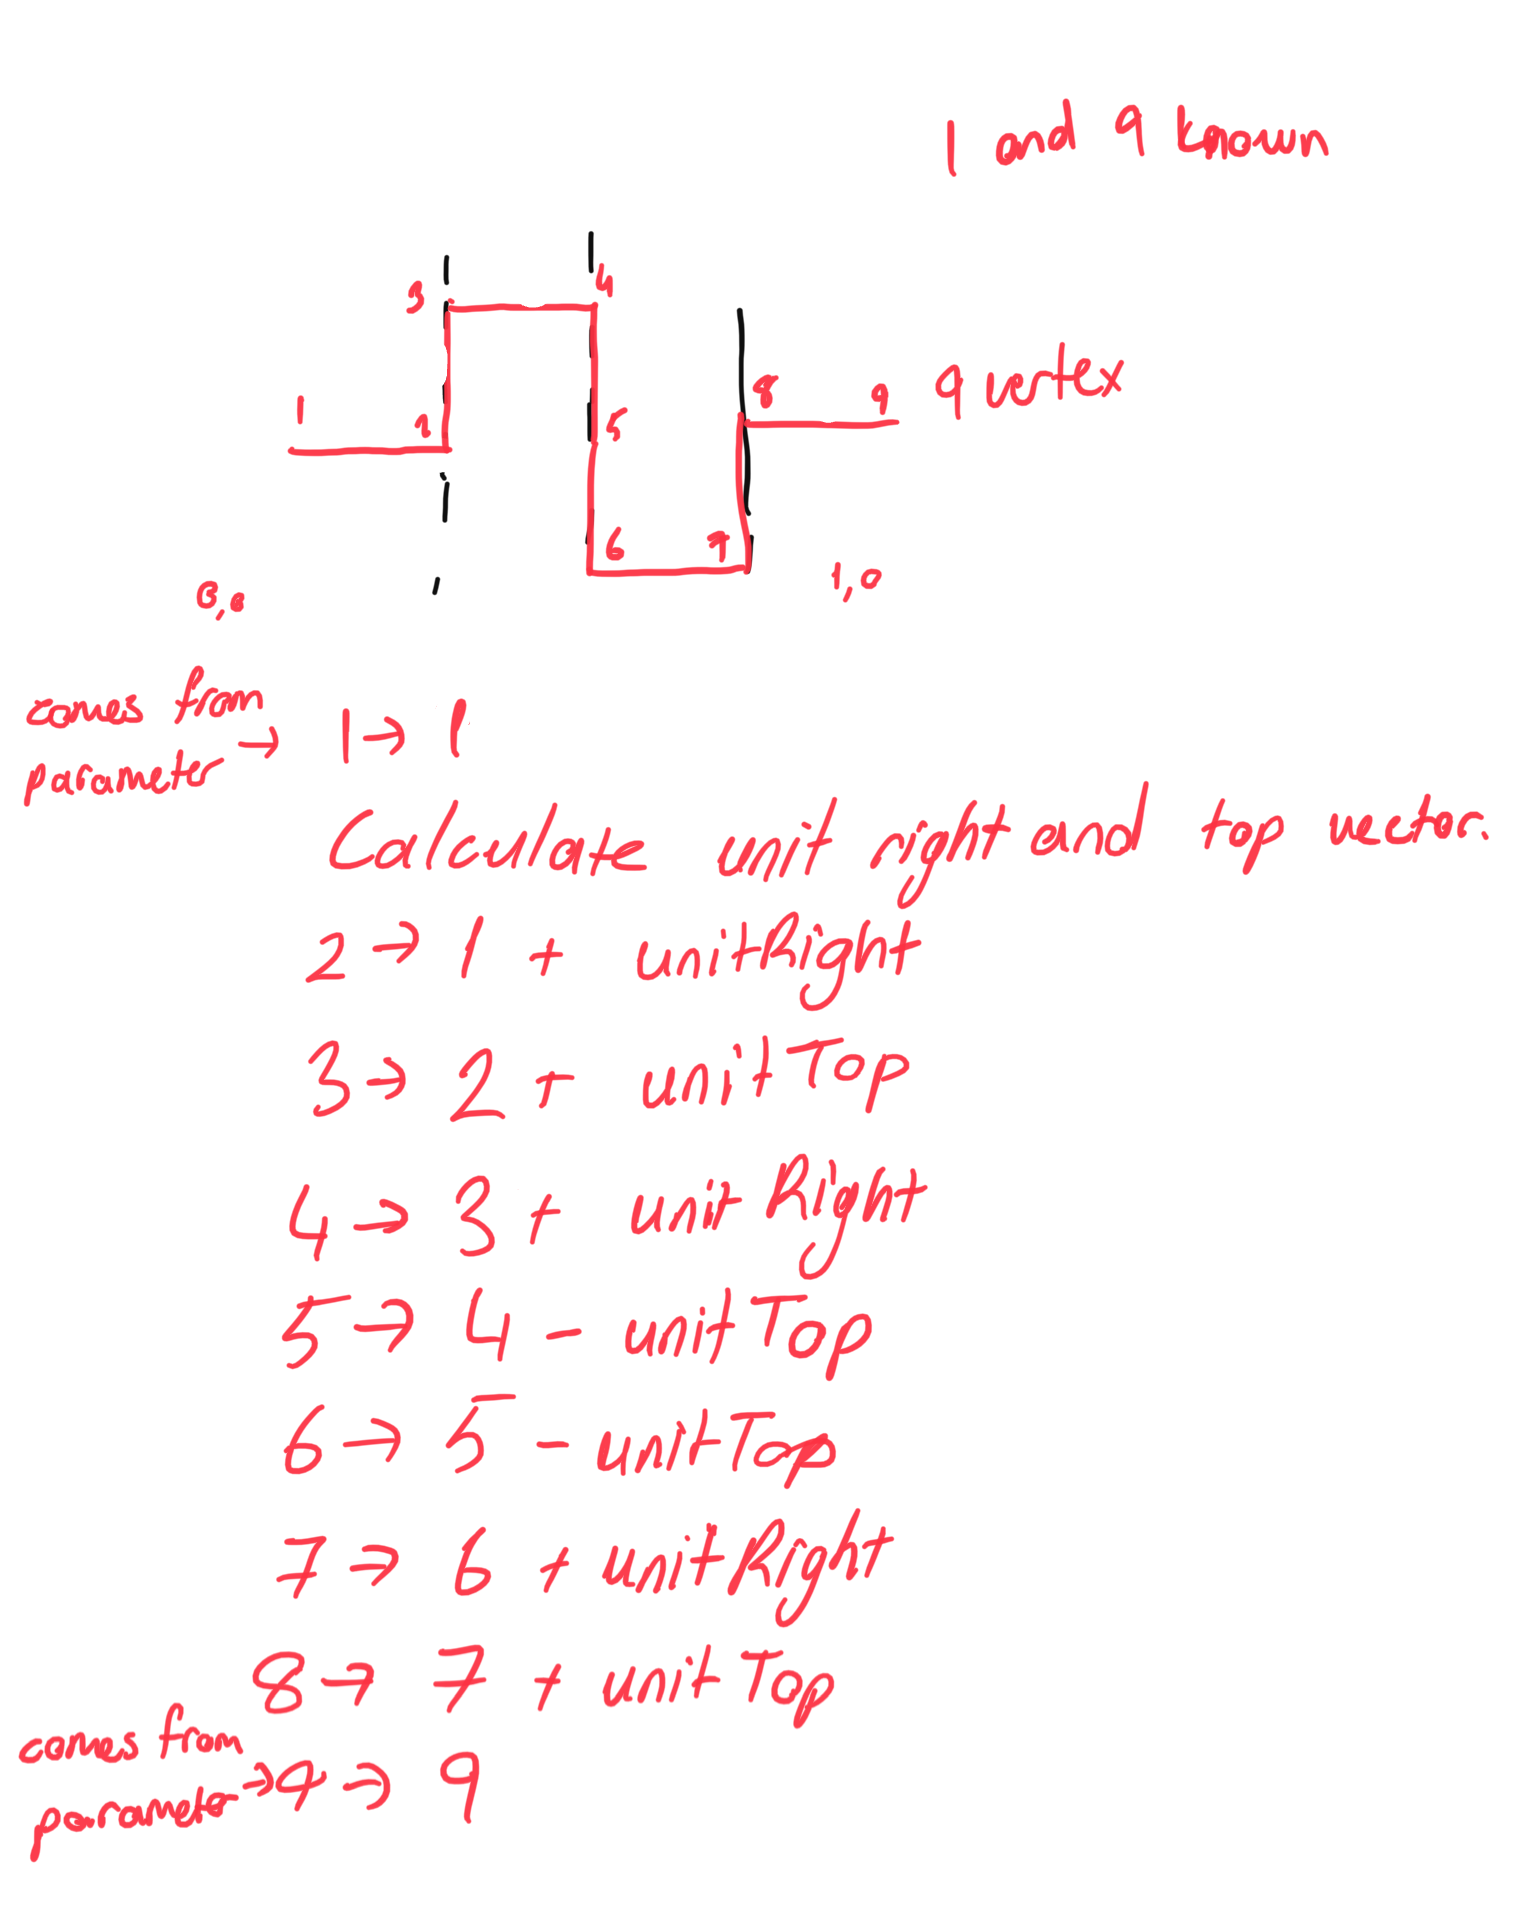 1 and 9 known
3
4
1
2
5
8
9
9 vertex
6
7
0,0
1,0
comes from
parameter → 1 → 1
Calculate unit right and top vector.
2 → 1 + unitRight
3 → 2 + unitTop
4 → 3 + unitRight
5 → 4 - unitTop
6 → 5 - unitTop
7 → 6 + unitRight
8 → 7 + unitTop
comes from
parameter → 9 → 9